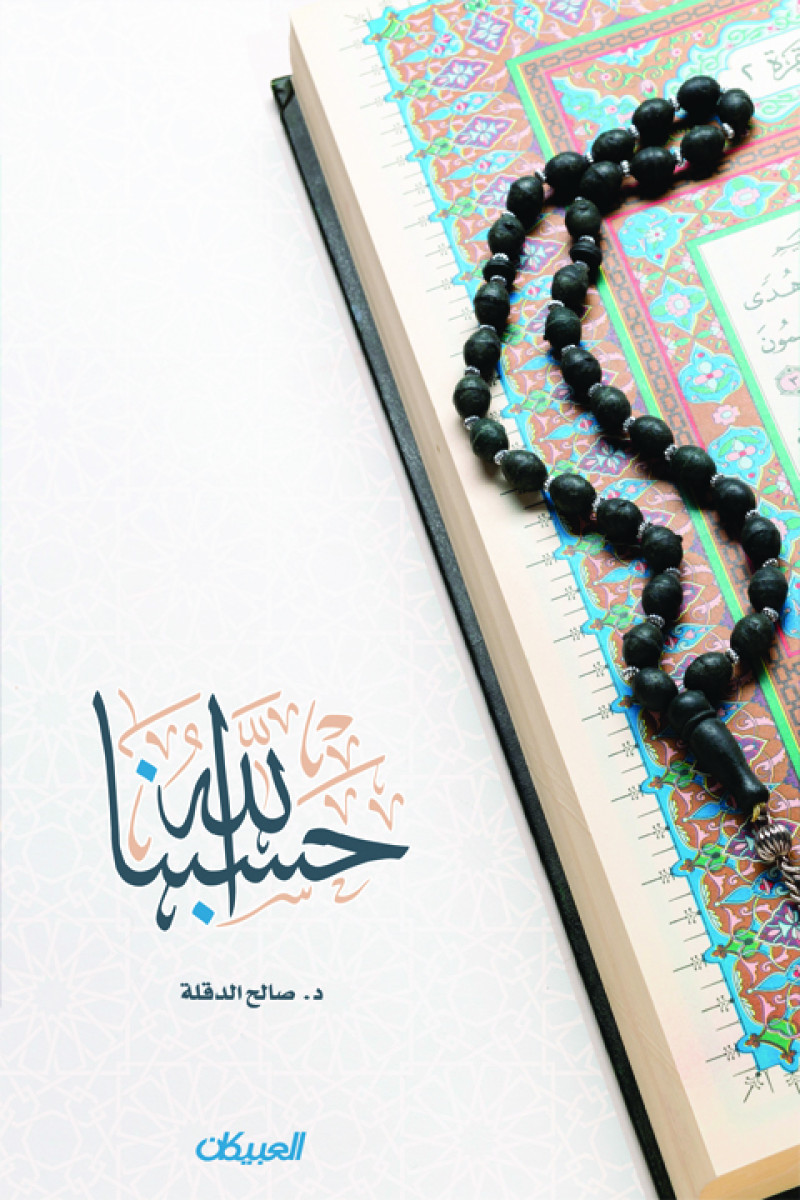 حسبنا الله
د. صالح الدقلة
العبيكان
هُدًى
٢